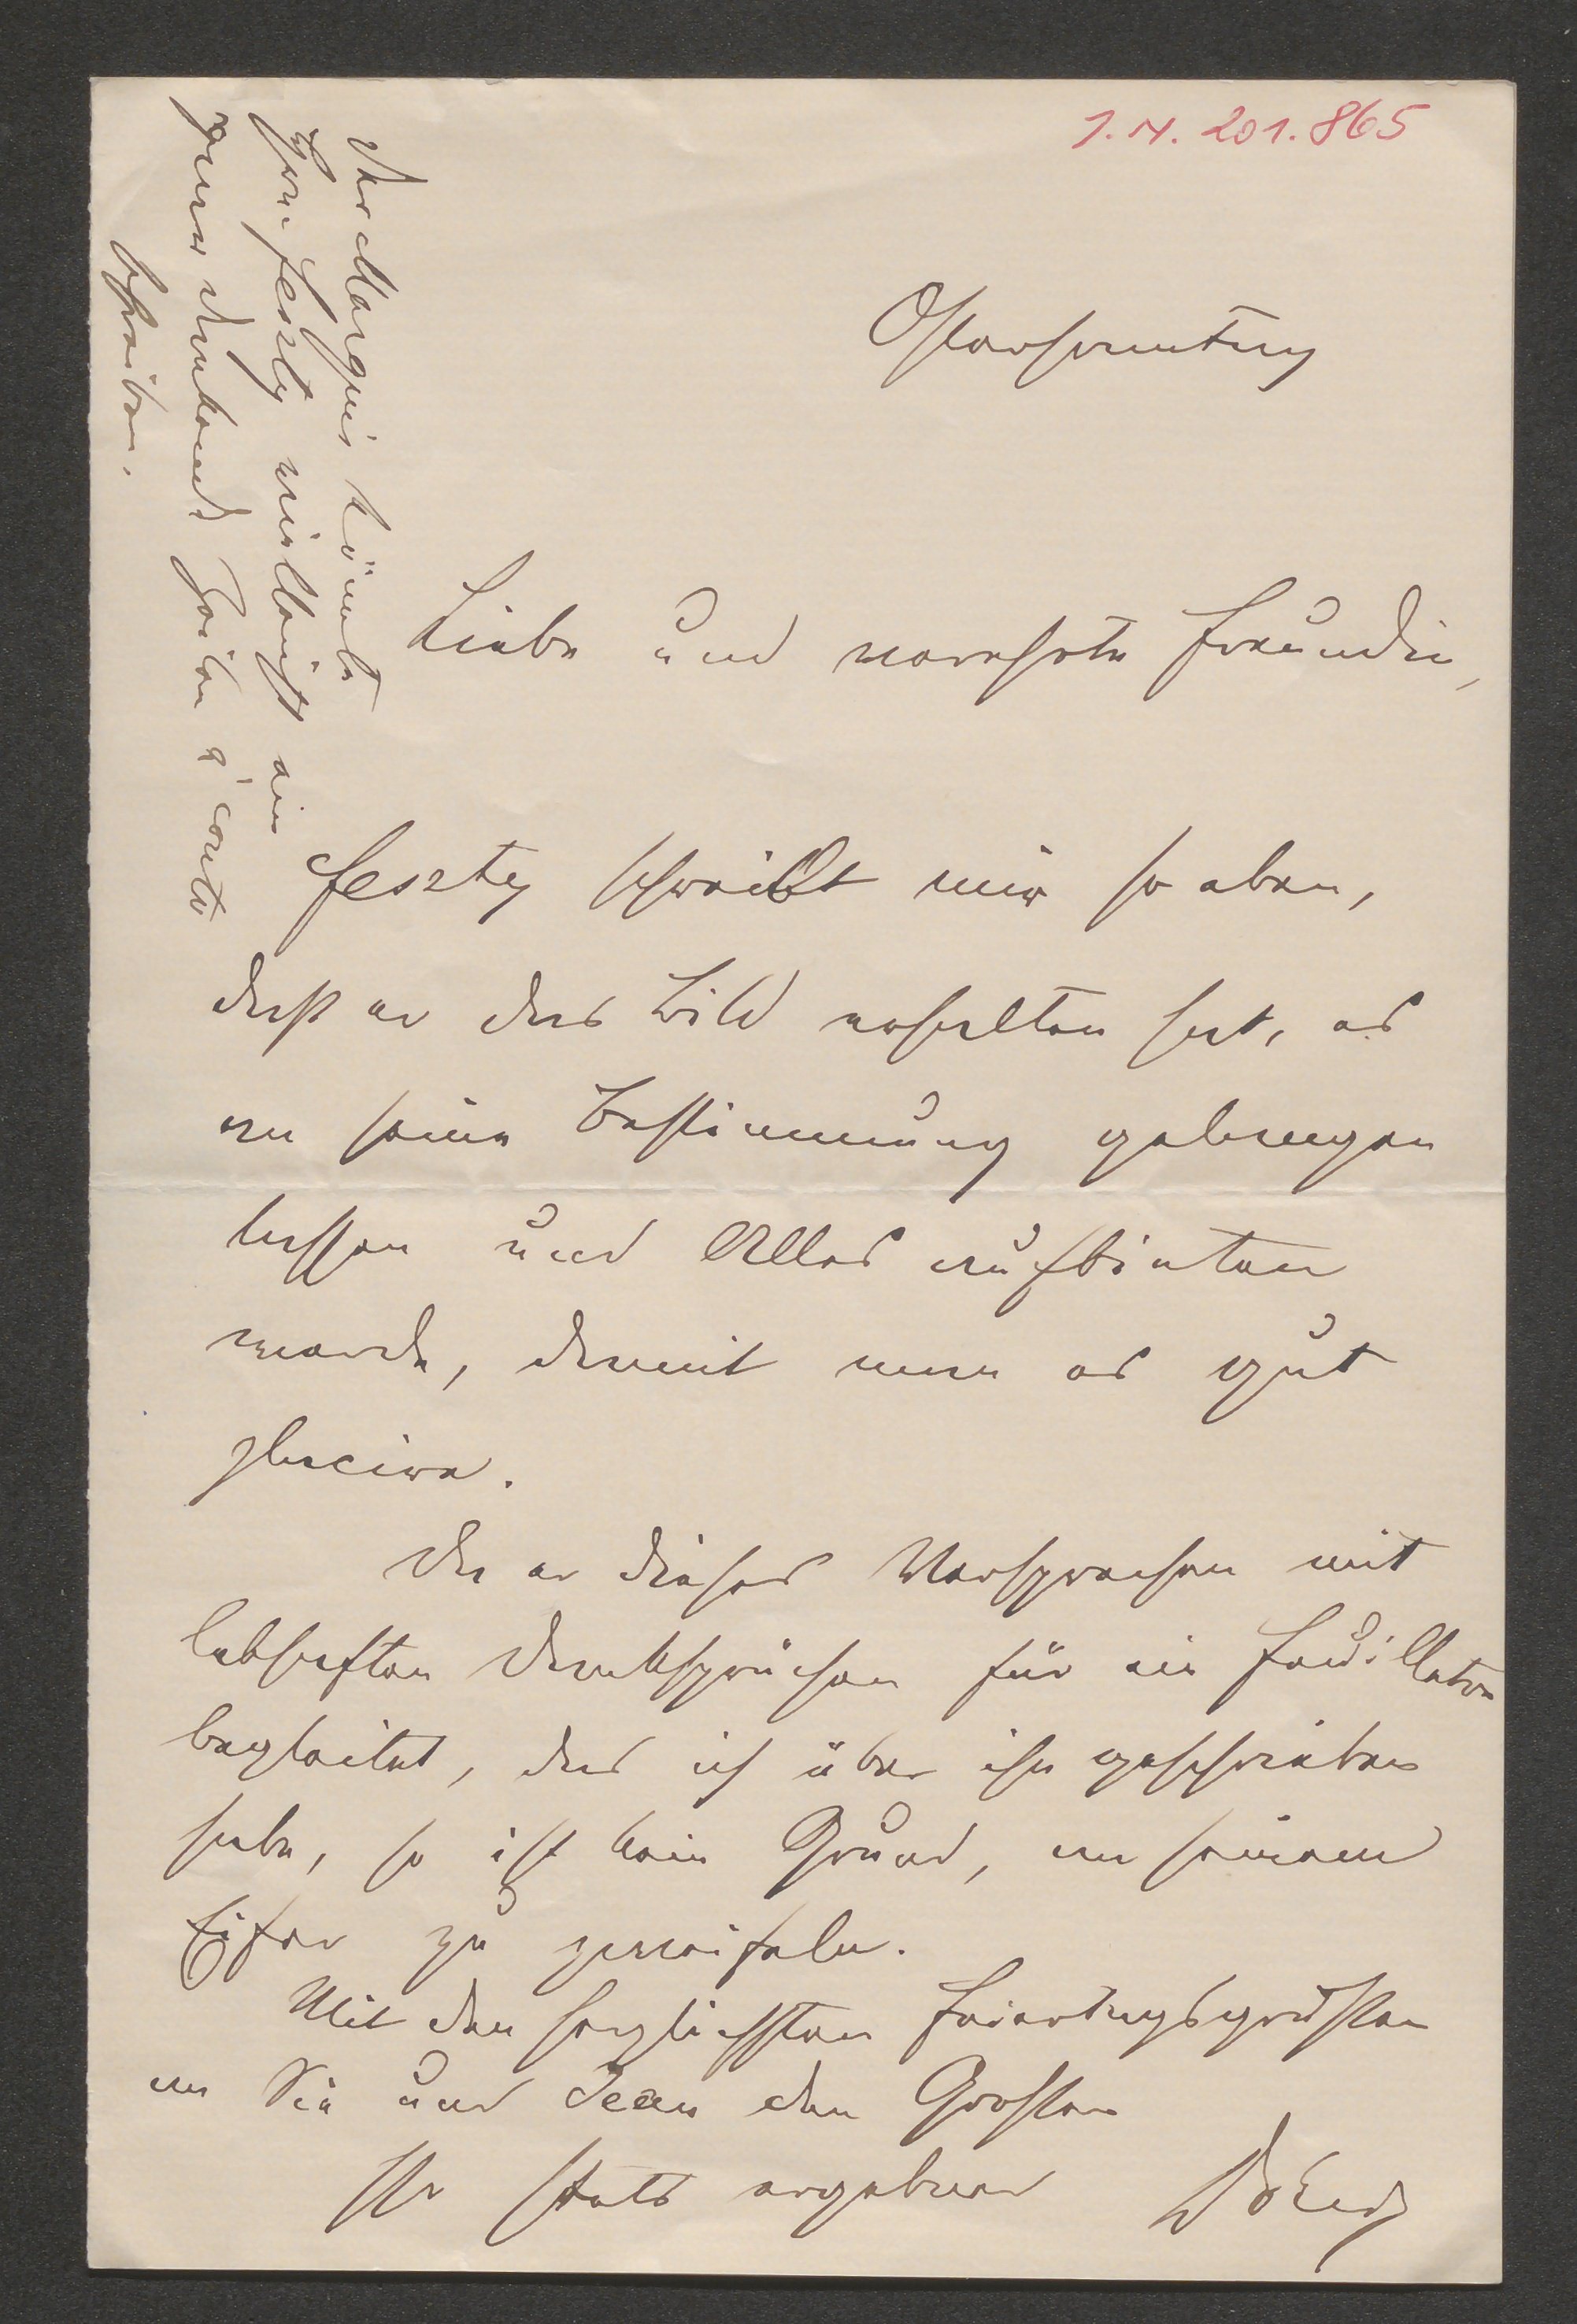 I. N. 201.865
Ostersonntag
Liebe und verehrte Freundin,
Feszty schreibt mir so eben,
daß er das Bild erhalten hat, es
an seine Bestimmung gelangen
lassen und Alles aufbieten
werde, damit man es gut
placire.
Da er dieses Versprechen mit
lebhaften Danksprüchen für ein Feuilleton
begleitet, das ich über ihn geschrieben
habe, so ist kein Grund, an seinem
Eifer zu zweifeln.
Mit den herzlichsten Feiertagsgrüßen
an Sie und Jean den Großen
Ihr stets ergebener Dóczi
Der Marquis könnte
Herrn Feszty vielleicht ein
paar dankende Zeilen à conto
schreiben.